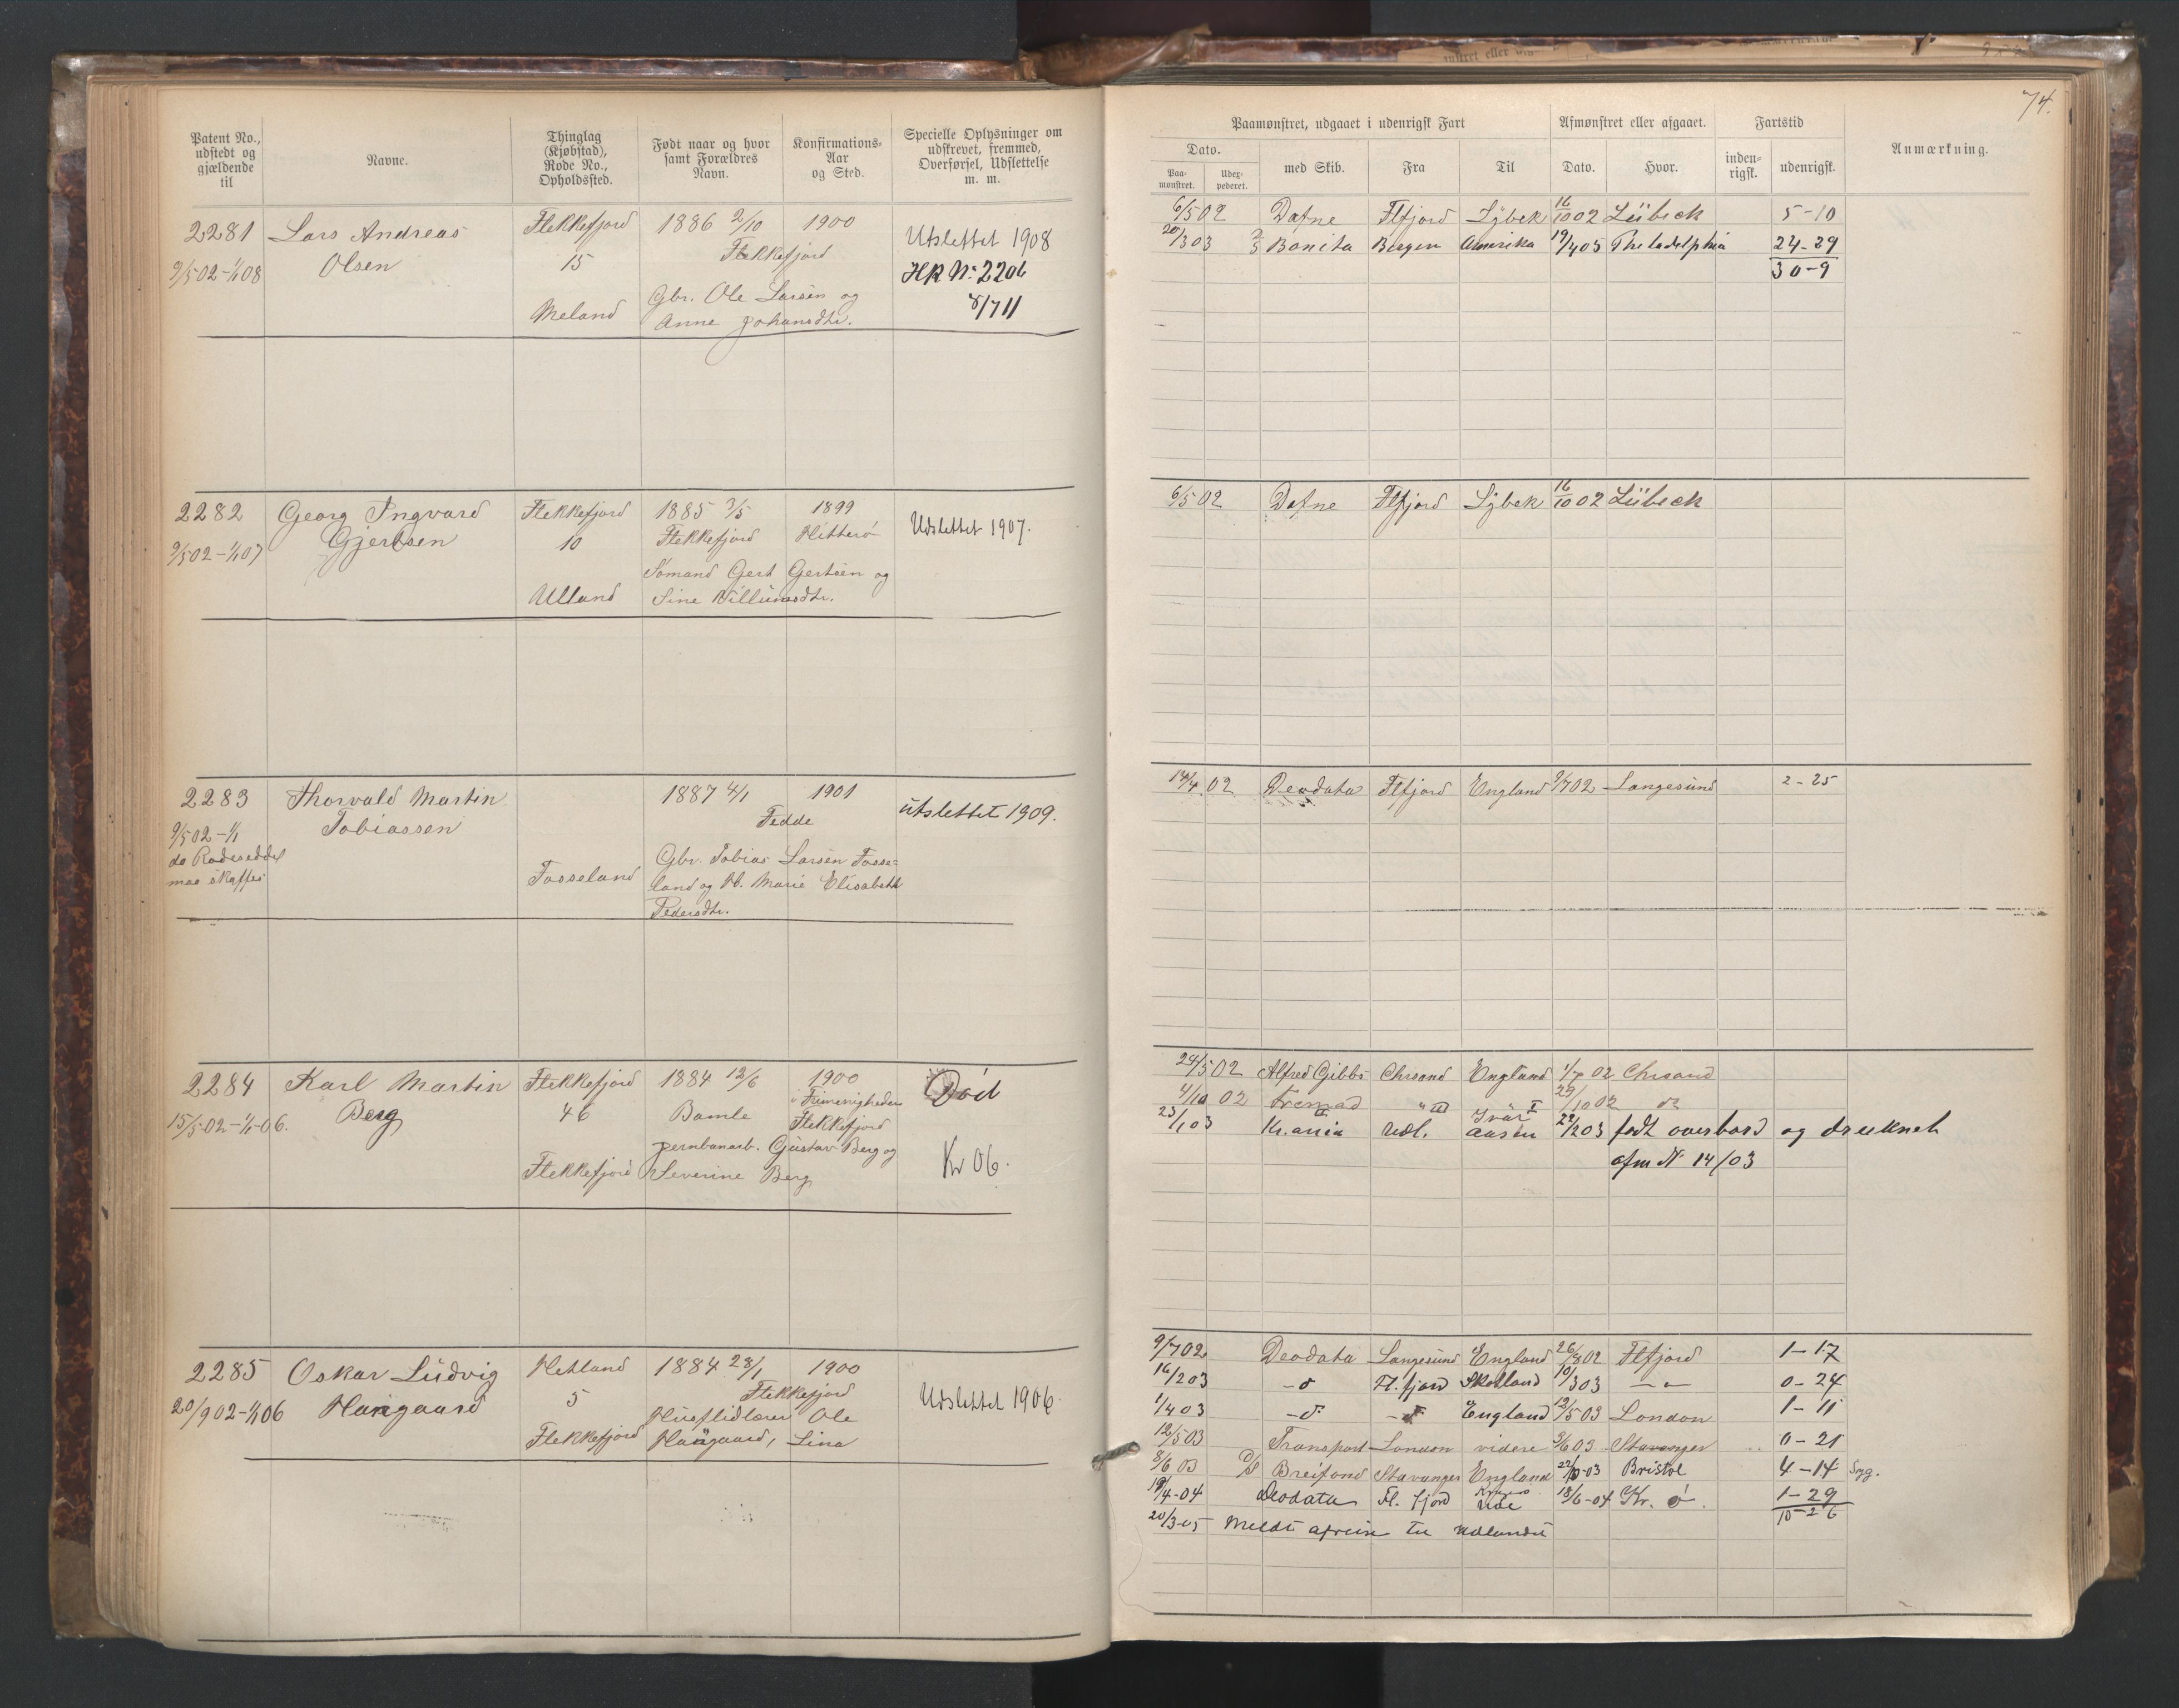 74.
Patent No., udstedt og gjældende til
Navne.
Thinglag (Kjøbstad), Rode No., Opholdssted.
Født naar og hvor samt Forældres Navn.
Konfirmations-Aar og Sted.
Specielle Oplysninger om udskrevet, fremmed, Overførsel, Udslettelse m. m.
Paamønstret, udgaaet i udenrigsk Fart
Afmønstret eller afgaaet.
Fartstid
Anmærkning.
Dato.
Paa-mønstret.
med Skib.
Fra
Til
Dato.
Hvor.
inden-rigsk.
udenrigsk.
2281
9/5 02 - 1/1 08
Lars Andreas
Olsen
Flekkefjord
15
Meland
1886 2/10
1900
Flekkefjord
Gbr. Ole Larsen og
Anne Johansdtr.
Utslettet 1908
HR No 2206
8/7 11
6/5 02 Dafne Flfjord Lybek 16/10 02 Lübeck 5-10
20/3 03 Bonita Bergen Amerika 19/4 05 Philadelphia 24-29
30-9
2282
9/5 02 - 1/1 07
Georg Ingvard
Gjertsen
Flekkefjord
10
Ulland
1885 3/5
1899
Flekkefjord
Hitterø
Sømand Gert Gertsen og
Sine Villumsdtr.
Udslettet 1907.
6/5 02 Dafne Flfjord Lybek 16/10 02 Lübeck
2283
9/5 02 - 1/1
do Rodeseddel
maa skaffes
Thorvald Martin
Tobiassen
Fosseland
1887 4/1
1901
Fedde
Gbr. Tobias Larsen Fosse=
land og H. Marie Elisabeth
Pedersdtr.
utslettet 1909.
14/4 02 Deodata Flfjord England 9/7 02 Langesund 2-25
2284
15/5 02 - 1/1 - 06.
Karl Martin
Berg
Flekkefjord
46
Flekkefjord
1884 12/6
1900
Bamle
i Frimenigheden
Flekkefjord
Jernbanarb. Gustav Berg og
Severine Berg
Død
Kr 06.
24/5 02 Alfred Gibbs Chrsand England 1/7 02 Chrsand
4/10 02 Fremad 29/10 02 do
23/1 03 Kr.ania Udl. Ivar Aasen 22/12 03 fadt overbord og druknet
afm No 14/03
2285
20/9 02 - 1/1 06
Oskar Ludvig
Haugaard
Hetland
5
Flekkefjord
1884 28/1
1900
Flekkefjord
Husflidlærer Ole
Haugaard, Lina
Udslettet 1906
9/7 02 Deodata Langesund England 26/8 02 Flfjord 1-17
16/2 03 - d Fl. fjord Skotland 10/3 03 - " - 0-24
1/4 03 - d - - d England 12/5 03 London 1-11
12/5 03 Transport London videre 3/6 03 Stavanger 0-21
8/6 03 D/S Breifond Stavanger England 22/10-03 Bristol 4-14 Syg.
19/4-04 Deodata Fl. fjord Kragerø Ude 18/6-04 Kr. ø. 1-29
10-26
20/3-05 Meldt afreise til Udlandet